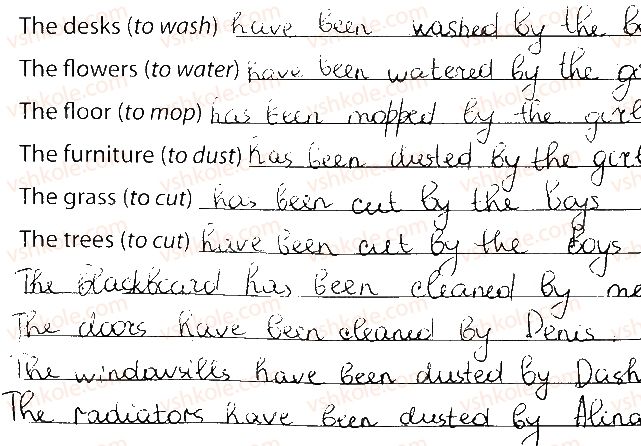 The desks (to wash) have been washed by the b
The flowers (to water) have been watered by the g
The floor (to mop) has been mopped by the girl
The furniture (to dust) has been dusted by the girl
The grass (to cut) has been cut by the boys
The trees (to cut) have been cut by the boys
The blackboard has been cleaned by me
The doors have been cleaned by Denis
The windowsills have been dusted by Dash
The radiators have been dusted by Alina